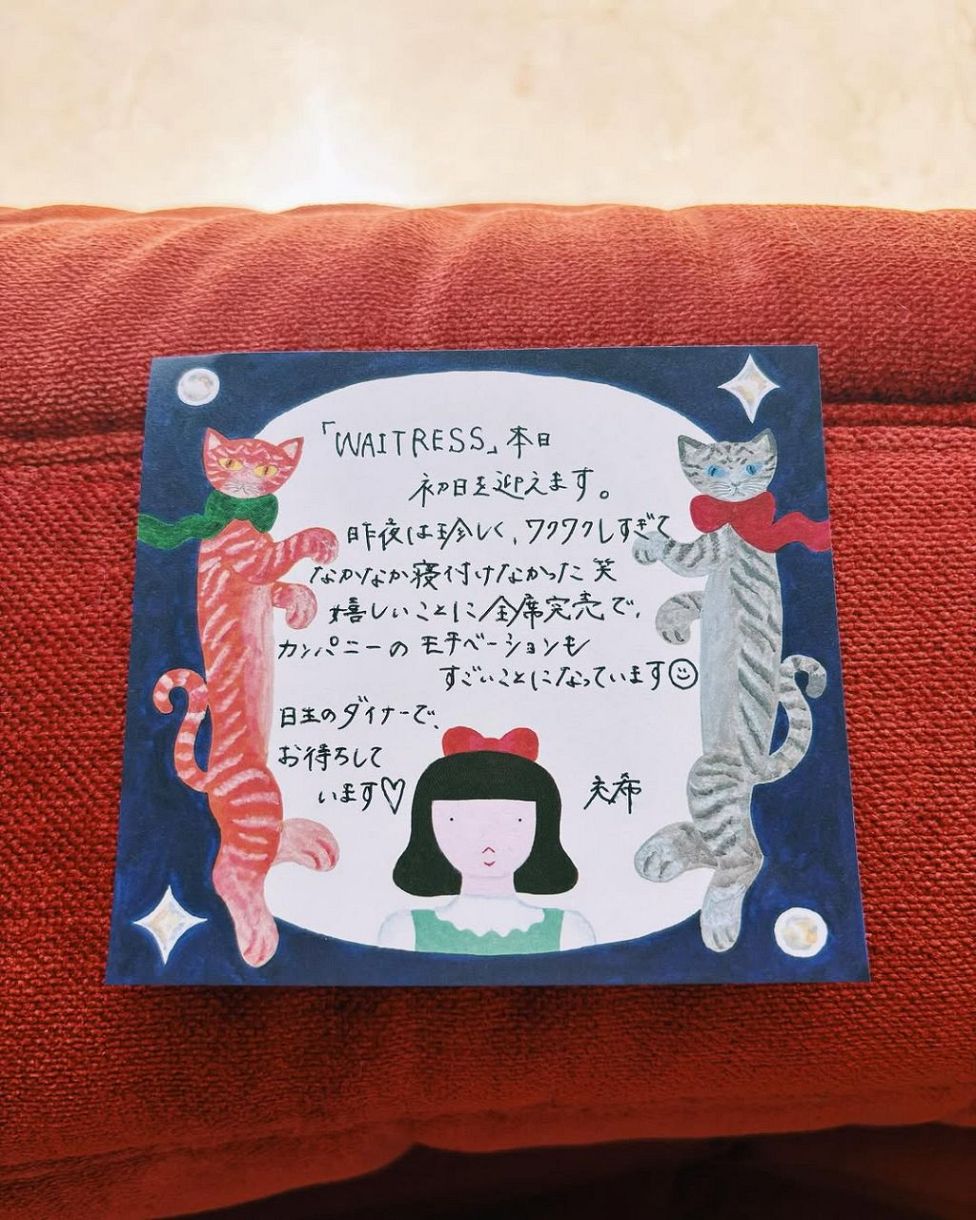 「WAITRESS」本日
初日を迎えます。
昨夜は珍しく、ワクワクしすぎて
なかなか寝付けなかった笑
嬉しいことに全席完売で、
カンパニーのモチベーションも
すごいことになっています
日生のダイナーで、
お待ちして
います♡
充希